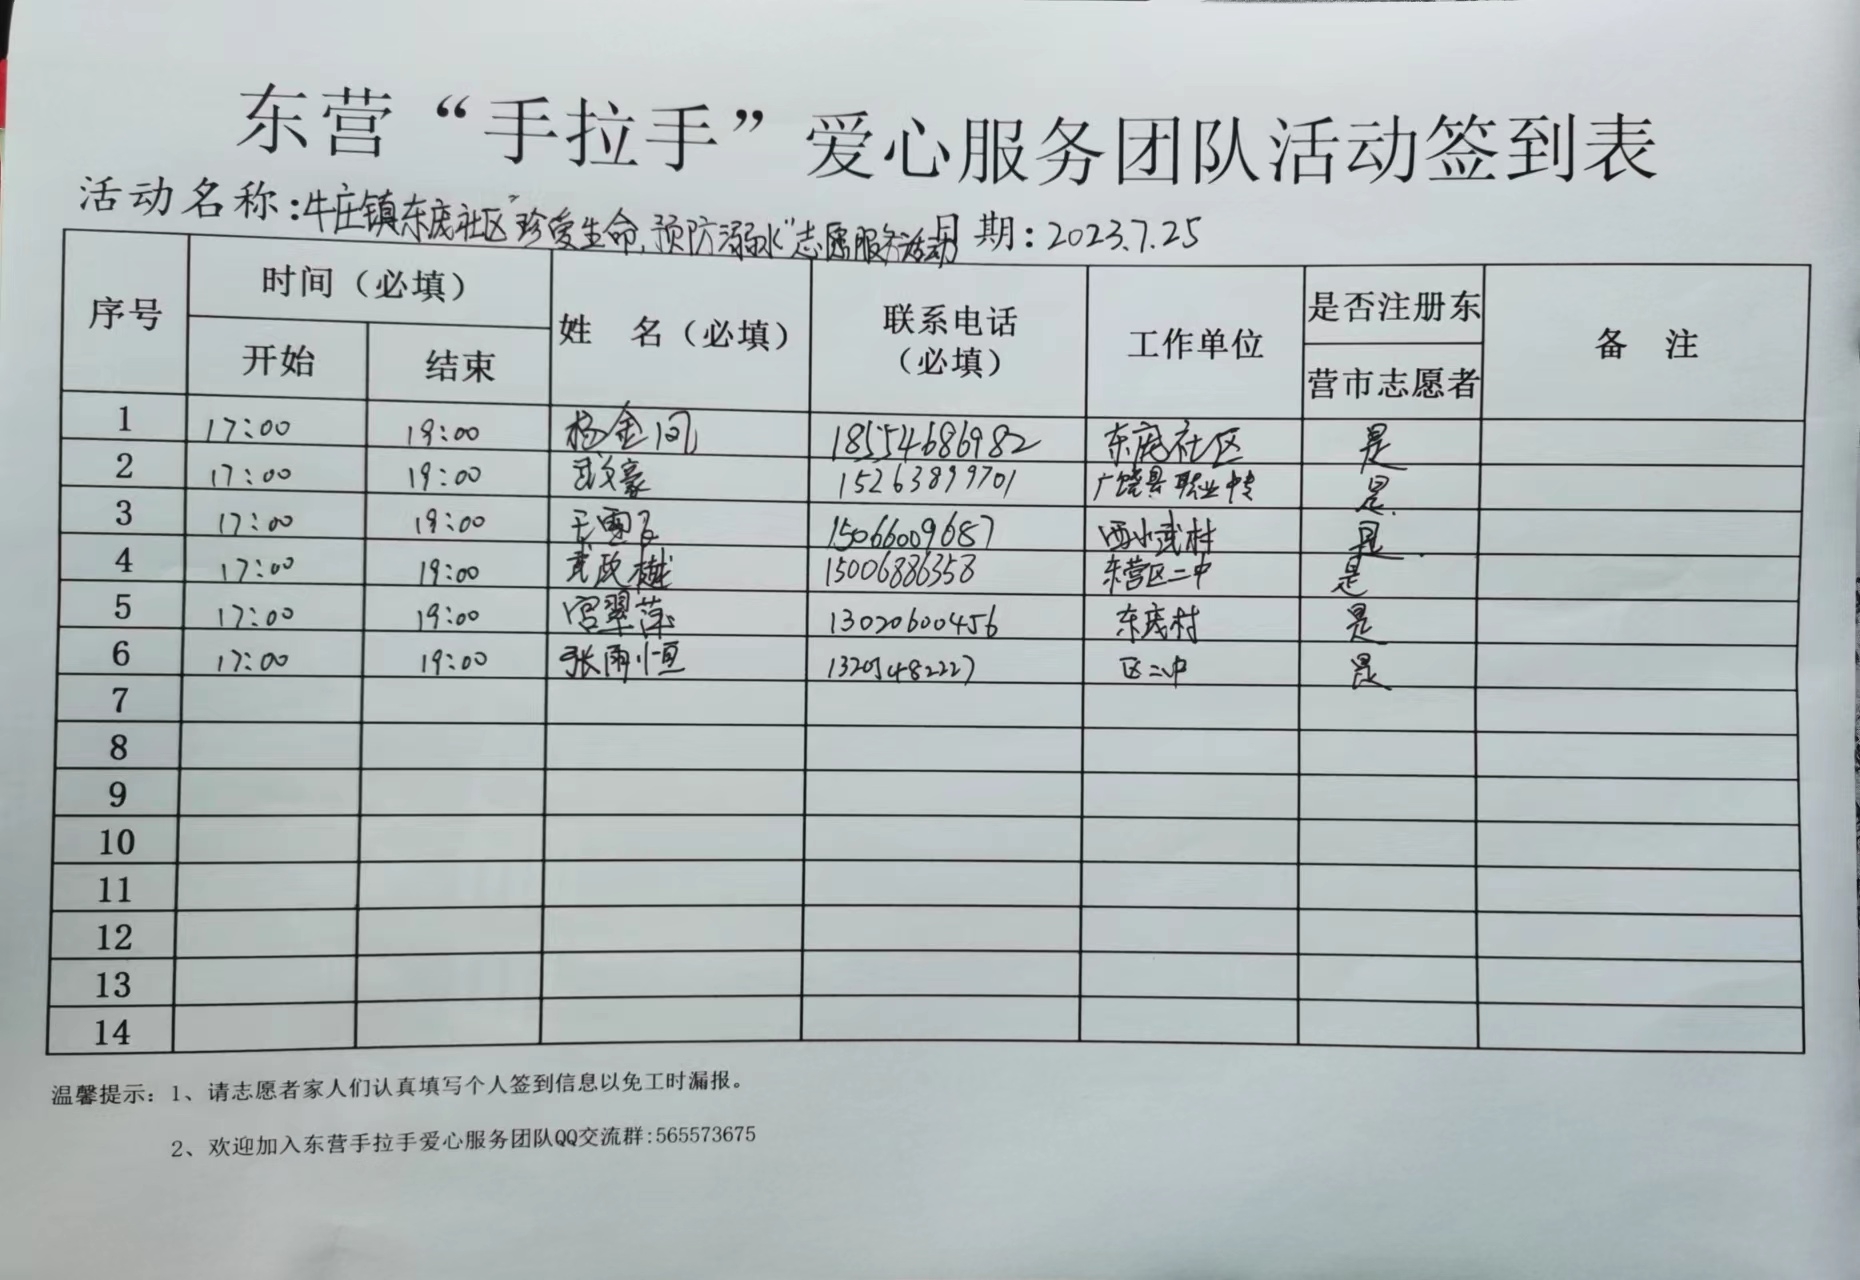 东营“手拉手”爱心服务团队活动签到表
活动名称:牛庄镇东庞社区“珍爱生命,预防溺水”志愿服务活动 日期:2023.7.25
序号 时间(必填) 姓 名(必填) 联系电话(必填) 工作单位 是否注册东营市志愿者 备 注
开始 结束
1 17:00 19:00 杨金 18554686982 东庞社区 是
2 17:00 19:00 武文豪 15263899701 广饶县职业中专 是
3 17:00 19:00 王雪飞 15066009687 西小武村 是
4 17:00 19:00 武政樾 15006886358 东营区二中 是
5 17:00 19:00 宫翠萍 13020600456 东庞村 是
6 17:00 19:00 张雨恒 区二中 是
7
8
9
10
11
12
13
14
温馨提示:1、请志愿者家人们认真填写个人签到信息以免工时漏报。
2、欢迎加入东营手拉手爱心服务团队QQ交流群:565573675